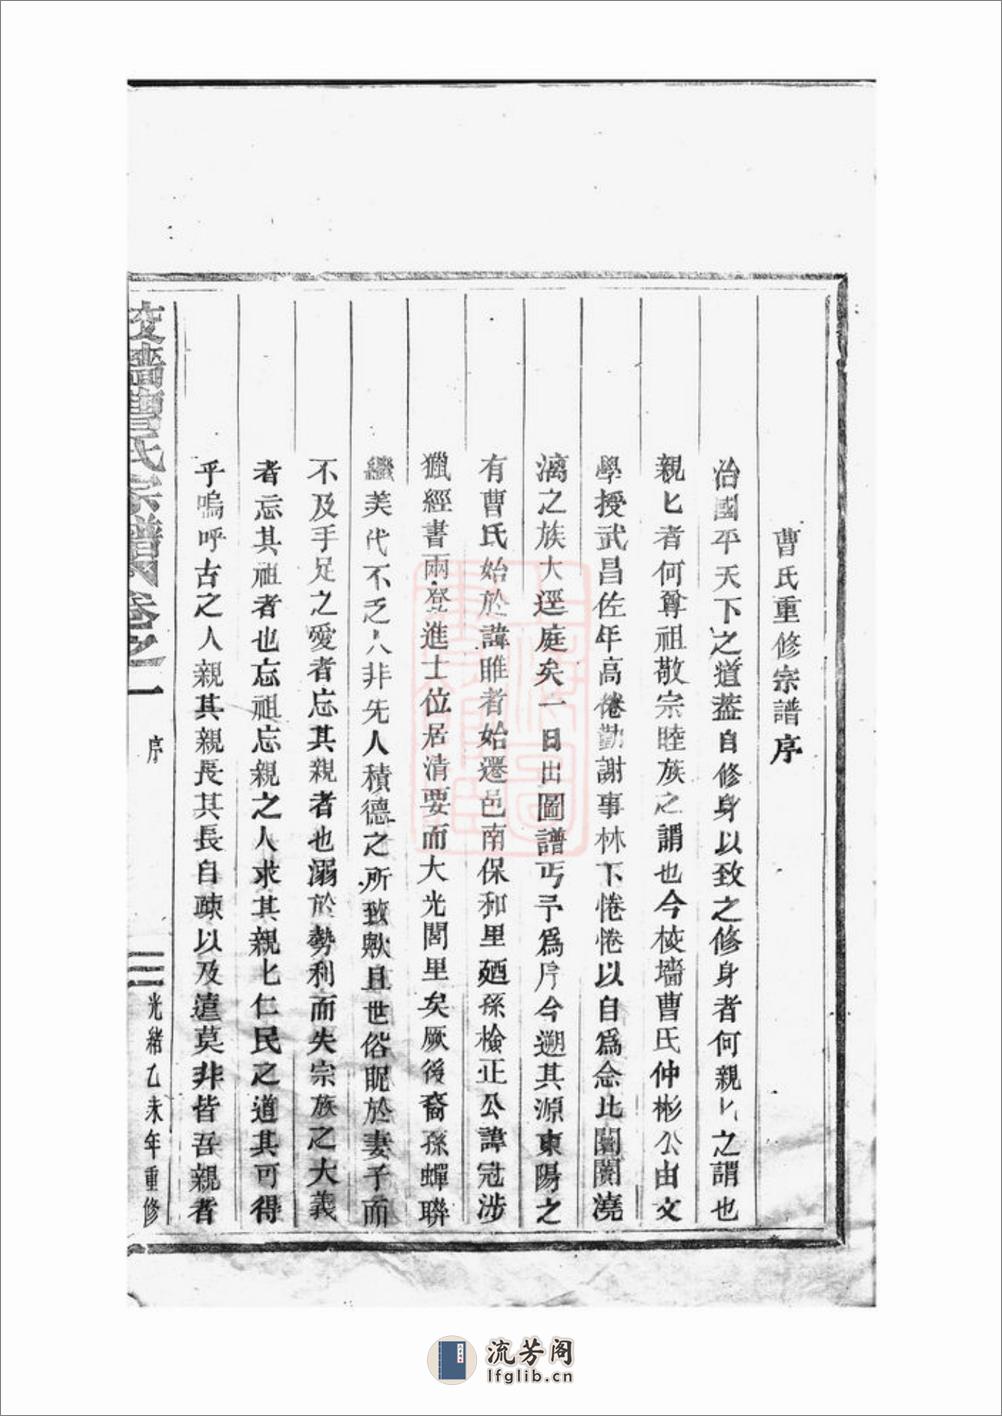 曹氏重修宗譜序
治國平天下之道蓋自修身以致之修身者何親匕之謂也
親匕者何尊祖敬宗睦族之謂也今棱墻曹氏仲彬公由文
學授武昌佐年高倦勤謝事林下惓惓以自為念比閭閻澆
漓之族大逕庭矣一日出圖譜丐予為序今遡其源東陽之
有曹氏始於諱睢者始遷邑南保和里廼孫檢正公諱冠涉
獵經書兩登進士位居清要而大光閭里矣厥後裔孫蟬聯
繼美代不乏人非先人積德之所致歟且世俗眤於妻子而
不及手足之愛者忘其親者也溺於勢利而失宗族之大義
者忘其祖者也忘祖忘親之人求其親匕仁民之道其可得
乎嗚呼古之人親其親長其長自疎以及遠莫非皆吾親者
墻曹氏宗譜 卷之一 序 三 光緒乙未年重修
流芳阁
lfglib.cn